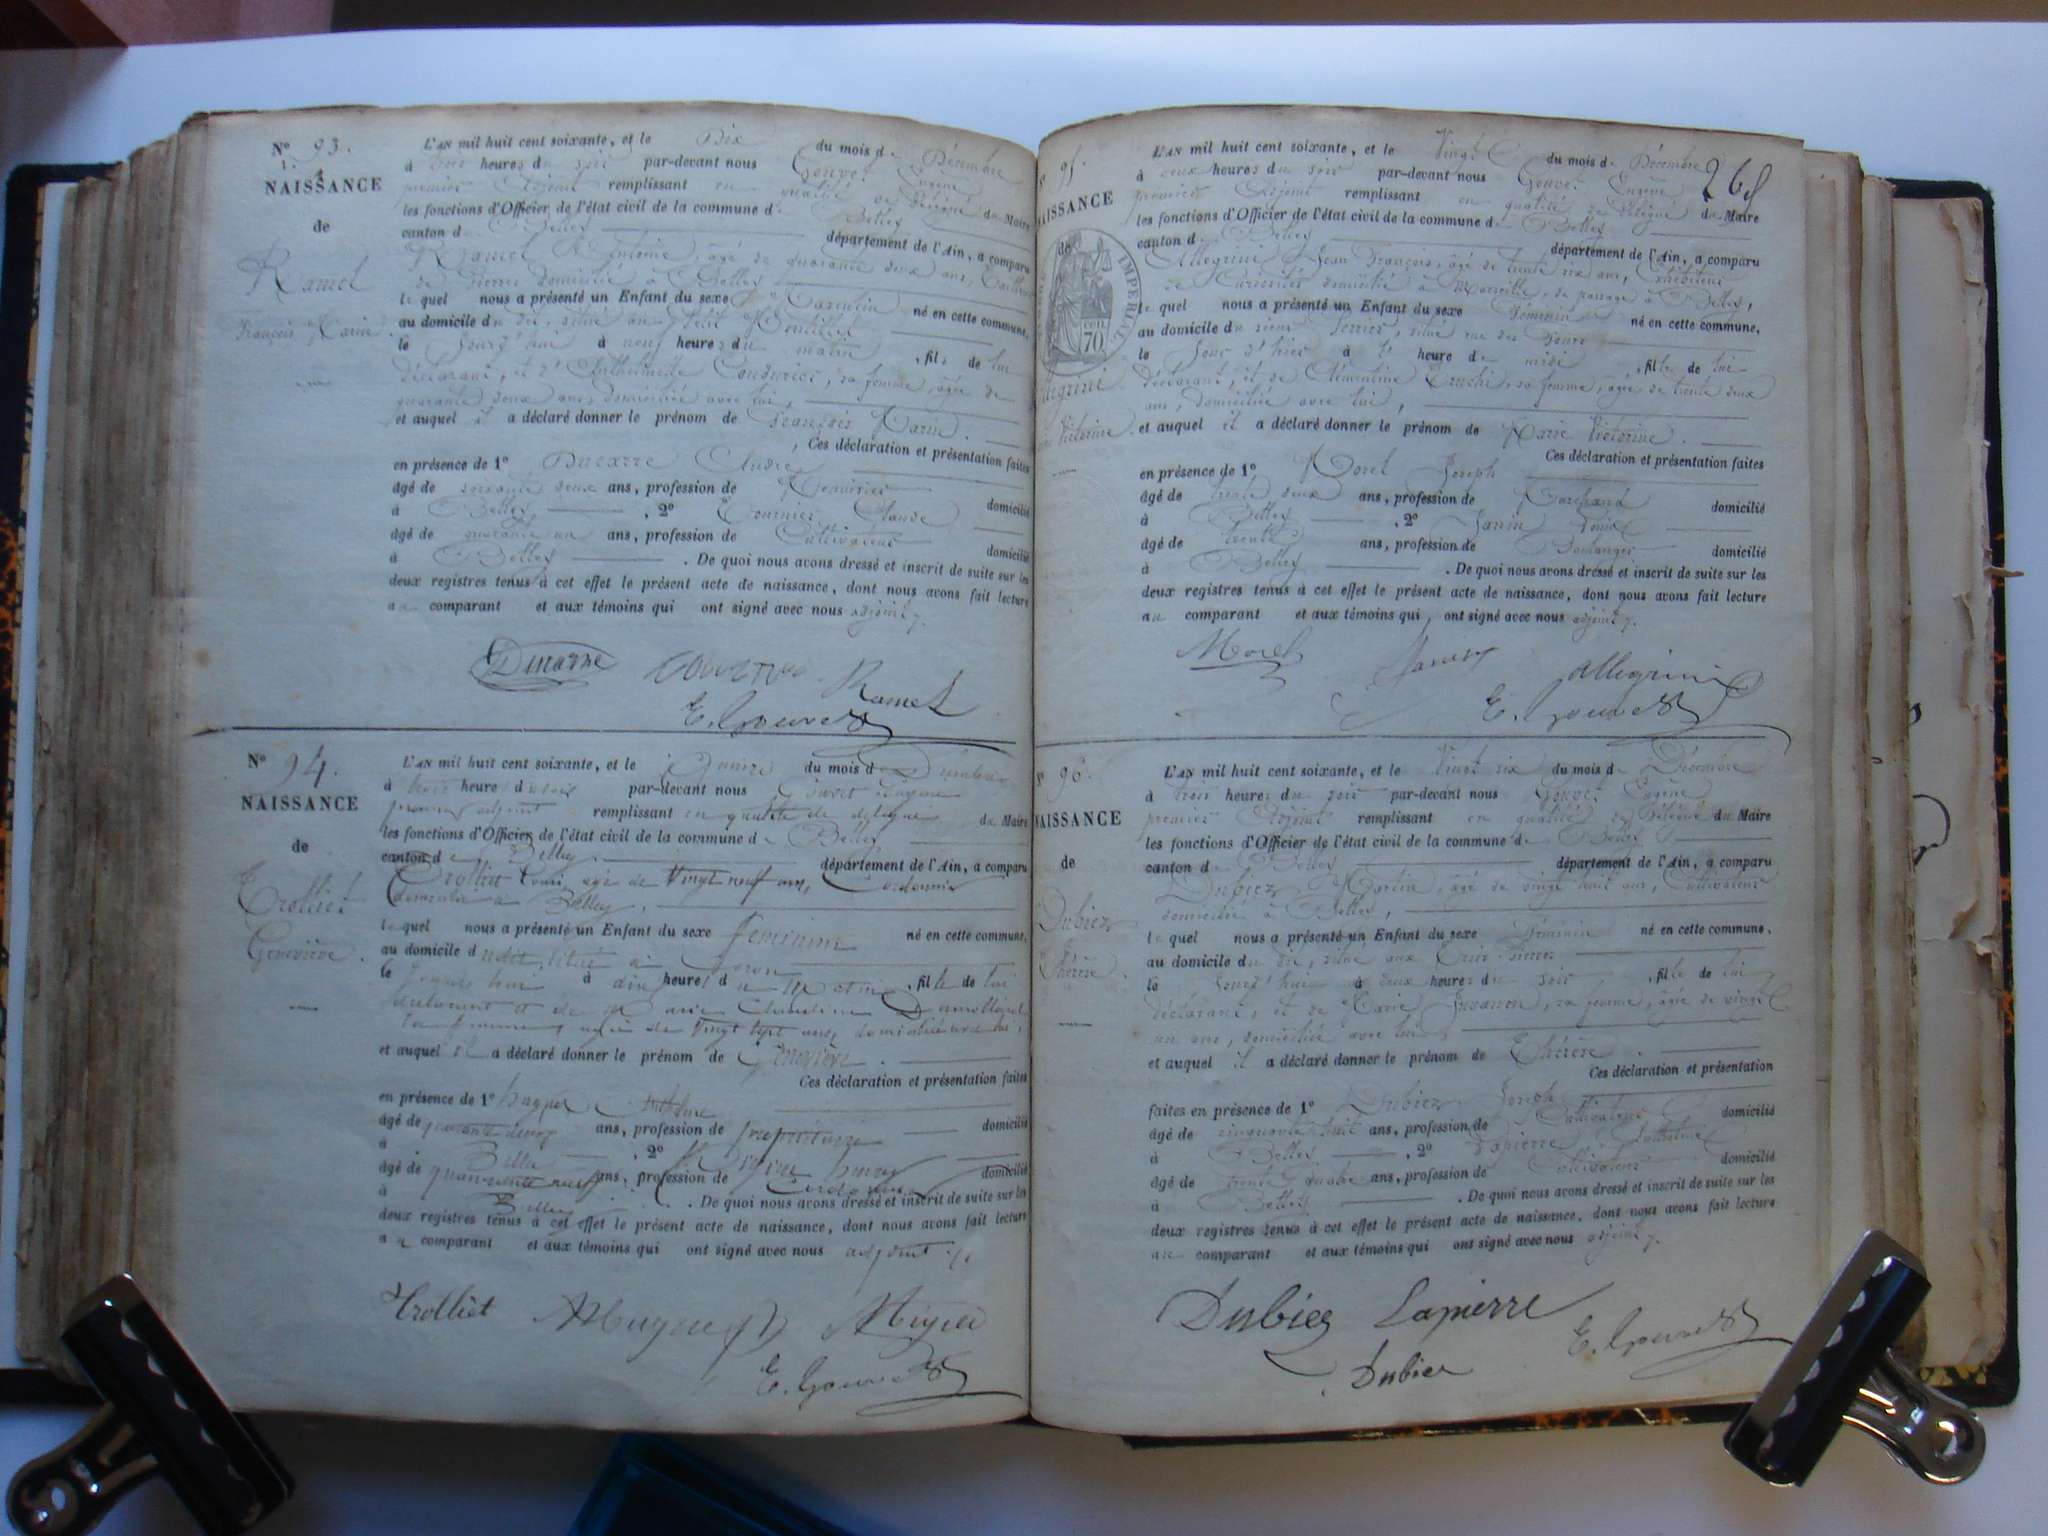 N° 93.
NAISSANCE
de
Ramel
François Marie
L'AN mil huit cent soixante, et le Dix du mois de Décembre
à trois heures du soir par-devant nous Gouvet Eugène
premier Adjoint remplissant en qualité de Délégué du Maire
les fonctions d'Officier de l'état civil de la commune de Belley
canton de Belley département de l'Ain, a comparu
Ramel Antoine, âgé de quarante deux ans, Tailleur
de Pierres domicilié à Belley
lequel nous a présenté un Enfant du sexe Masculin né en cette commune,
au domicile du dit, situé au
le jourd'hui à neuf heures du matin, fils de lui
déclarant, et d' sa femme, âgée de
quarante deux ans, domiciliée avec lui,
et auquel il a déclaré donner le prénom de François Marie.
Ces déclaration et présentation faites
en présence de 1° Ducarre
âgé de soixante deux ans, profession de Menuisier domicilié
à Belley, 2° Tournier Claude
âgé de quarante un ans, profession de Cultivateur domicilié
à Belley. De quoi nous avons dressé et inscrit de suite sur les
deux registres tenus à cet effet le présent acte de naissance, dont nous avons fait lecture
au comparant et aux témoins qui ont signé avec nous adjoint
Ramel
E. Gouvet
N° 94.
NAISSANCE
de
Trolliet
Geneviève.
L'AN mil huit cent soixante, et le Quinze du mois de Décembre
à trois heure du soir par-devant nous Gouvet Eugène
premier adjoint remplissant en qualité de délégué du Maire
les fonctions d'Officier de l'état civil de la commune de Belley
canton de Belley département de l'Ain, a comparu
Trolliet Louis âgé de vingt neuf ans, Cordonnier
domicilié à Belley,
lequel nous a présenté un Enfant du sexe féminin né en cette commune,
au domicile dudit, situé à
le jourd'hui à dix heures du matin, fille de lui
déclarant et de Marie Claudine
sa femme, âgée de vingt sept ans, domiciliée avec lui,
et auquel il a déclaré donner le prénom de Geneviève.
Ces déclaration et présentation faites
en présence de 1°
âgé de quarante deux ans, profession de propriétaire domicilié
à Belley, 2°
âgé de quarante neuf ans, profession de Cordonnier domicilié
à Belley. De quoi nous avons dressé et inscrit de suite sur les
deux registres tenus à cet effet le présent acte de naissance, dont nous avons fait lecture
au comparant et aux témoins qui ont signé avec nous adjoint
Trolliet
E. Gouvet
95
NAISSANCE
de
IMPERIAL
70
Victorine
L'AN mil huit cent soixante, et le Vingt du mois de Décembre
268
à deux heures du soir par-devant nous Gouvet Eugène
premier Adjoint remplissant en qualité de Délégué du Maire
les fonctions d'Officier de l'état civil de la commune de Belley
canton de Belley département de l'Ain, a comparu
Allegrini Jean François, âgé de trente six ans, Exhibiteur
de Curiosités domicilié à Marseille, de passage à Belley,
lequel nous a présenté un Enfant du sexe féminin né en cette commune,
au domicile du sieur situé rue des
le jour d'hier à heure de midi, fille de lui
déclarant, et de Clémentine sa femme, âgée de trente deux
ans, domiciliée avec lui,
et auquel il a déclaré donner le prénom de Marie Victorine.
Ces déclaration et présentation faites
en présence de 1° Morel Joseph
âgé de trente deux ans, profession de Marchand domicilié
à Belley, 2° Janin Louis
âgé de trente ans, profession de Boulanger domicilié
à Belley. De quoi nous avons dressé et inscrit de suite sur les
deux registres tenus à cet effet le présent acte de naissance, dont nous avons fait lecture
au comparant et aux témoins qui ont signé avec nous adjoint
Morel Janin Allegrini
E. Gouvet
96.
NAISSANCE
de
Dubiez
Thérèse.
L'AN mil huit cent soixante, et le Vingt six du mois de Décembre
à trois heures du soir par-devant nous Gouvet Eugène
premier Adjoint remplissant en qualité de Délégué du Maire
les fonctions d'Officier de l'état civil de la commune de Belley
canton de Belley département de l'Ain, a comparu
Dubiez Martin, âgé de vingt huit ans, Cultivateur
domicilié à Belley,
lequel nous a présenté un Enfant du sexe féminin né en cette commune,
au domicile du dit, situé aux
le jourd'hui à deux heures du soir, fille de lui
déclarant, et de Marie sa femme, âgée de vingt
un ans, domiciliée avec lui,
et auquel il a déclaré donner le prénom de Thérèse.
Ces déclaration et présentation
faites en présence de 1° Dubiez Joseph
âgé de cinquante huit ans, profession de Cultivateur domicilié
à Belley, 2° Lapierre
âgé de trente quatre ans, profession de Cultivateur domicilié
à Belley. De quoi nous avons dressé et inscrit de suite sur les
deux registres tenus à cet effet le présent acte de naissance, dont nous avons fait lecture
au comparant et aux témoins qui ont signé avec nous adjoint
Dubiez Lapierre
Dubiez E. Gouvet